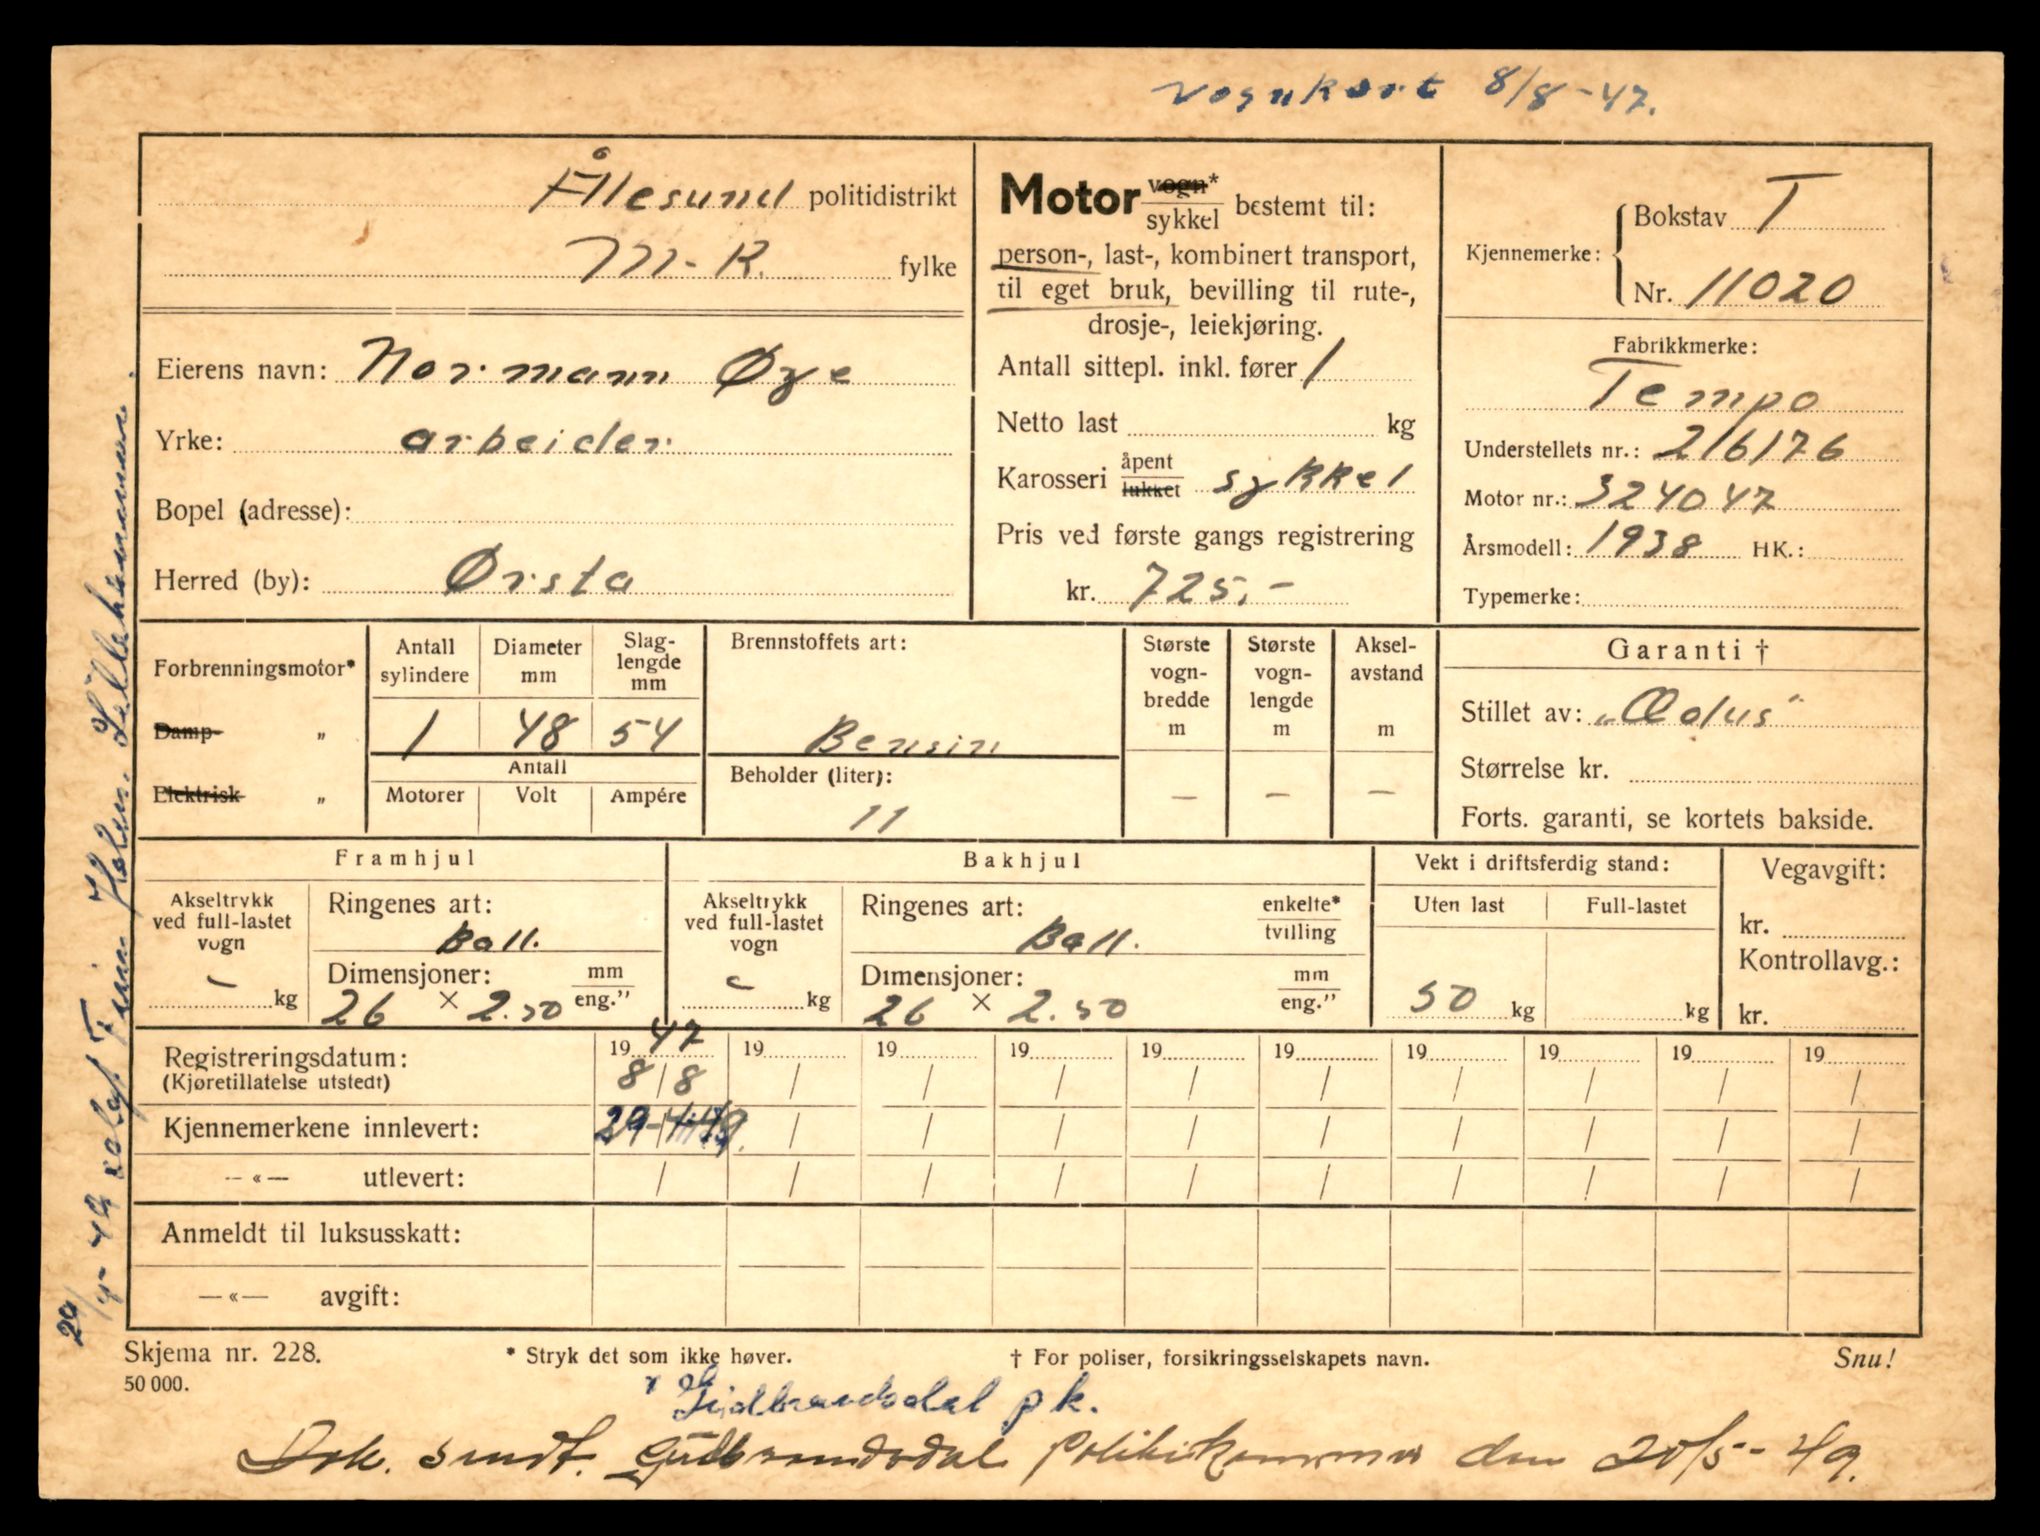 Vognkort 8/8-47.
Ålesund politidistrikt
M-R. fylke
Eierens navn: Normann Øye
Yrke: arbeider
Bopel (adresse):
Herred (by): Ørsta
Motor vogn* sykkel bestemt til:
person-, last-, kombinert transport,
til eget bruk, bevilling til rute-,
drosje-, leiekjøring.
Antall sittepl. inkl. fører 1
Netto last kg
Karosseri åpent lukket sykkel
Pris ved første gangs registrering
kr. 725,-
Kjennemerke: Bokstav T
Nr. 11020
Fabrikkmerke:
Tempo
Understellets nr.: 216176
Motor nr.: 324047
Årsmodell: 1938 HK.:
Typemerke:
Forbrenningsmotor*
Damp- „
Elektrisk „
Antall sylindere
1
Diameter mm
48
Slag-lengde mm
54
Antall
Motorer Volt Ampére
Brennstoffets art:
Bensin
Beholder (liter):
11
Største vogn-bredde m
—
Største vogn-lengde m
—
Aksel-avstand m
—
Garanti †
Stillet av: „Æolus“
Størrelse kr.
Forts. garanti, se kortets bakside.
Framhjul
Akseltrykk ved full-lastet vogn
- kg
Ringenes art:
Ball.
Dimensjoner: mm eng.”
26 × 2.50
Bakhjul
Akseltrykk ved full-lastet vogn
- kg
Ringenes art: enkelte* tvilling
Ball.
Dimensjoner: mm eng.”
26 × 2.50
Vekt i driftsferdig stand:
Uten last Full-lastet
50 kg kg
Vegavgift:
kr.
Kontrollavg.:
kr.
Registreringsdatum: 1947 19 19 19 19 19 19 19 19 19
(Kjøretillatelse utstedt) 8/8 / / / / / / / / /
Kjennemerkene innlevert: 29-4-49. / / / / / / / / /
—«— utlevert: / / / / / / / / / /
Anmeldt til luksusskatt:
—«— avgift:
Skjema nr. 228. * Stryk det som ikke høver. † For poliser, forsikringsselskapets navn. Snu!
50 000.
Gudbrandsdal pk.
Dok. sendt. Gudbrandsdal politikammer den 20/5-49.
29/4-49 solgt Finn Holen, Lillehammer.